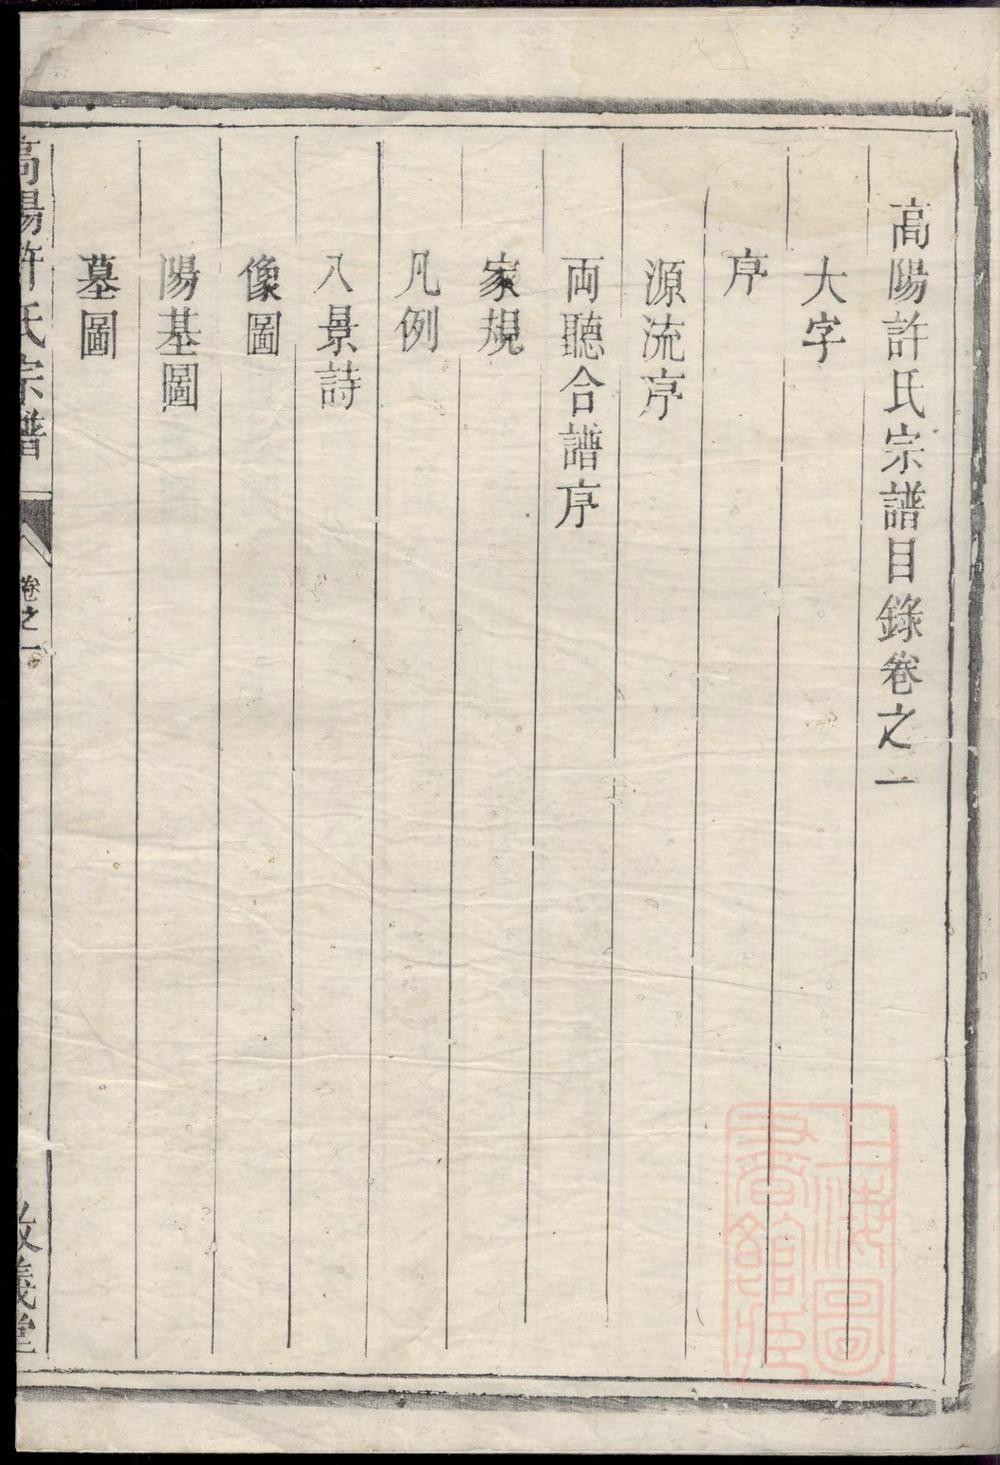 高陽許氏宗譜目錄卷之一
大字
序
源流序
両聽合譜序
家規
凡例
八景詩
像圖
陽基圖
墓圖
高陽許氏宗譜
卷之一
義堂
上海圖書館藏